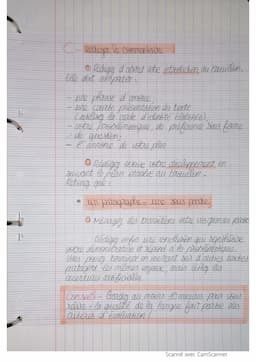 C - Rédiger le commentaire
① Rédigez d'abord votre introduction au brouillon.
Elle doit comporter :
- une phrase d'amorce
- une courte présentation du texte
- votre problématique, de préférence sous forme
de question ;
- l'annonce de votre plan
② Rédigez ensuite votre développement en
suivant le plan élaboré au brouillon.
Retenez que :
un paragraphe = une sous partie
③ Ménagez des transitions entre vos grandes parties
Rédigez enfin une conclusion qui synthétise
votre démonstration et répond à la problématique.
Vous pouvez terminer en
Conseils - Gardez au moins 10 minutes pour vous
relire : la qualité de la langue fait partie des
critères d'évaluation !
Scanné avec CamScanner